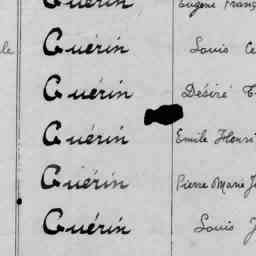 Guérin Eugène
Guérin Louis
Guérin Désiré
Guérin Emile Henri
Guérin Pierre Marie
Guérin Louis